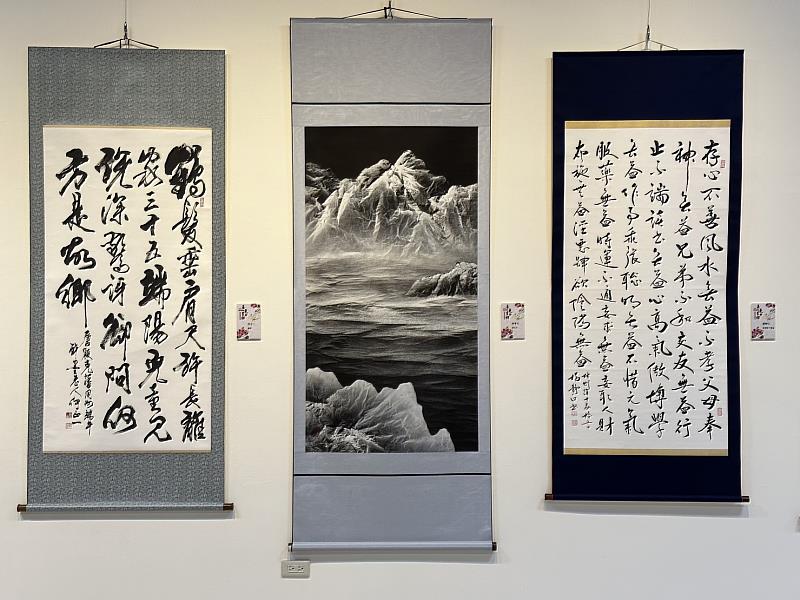 鶴髮垂肩尺許長離
家三十五端陽兒童見
說深驚訝卻問何
方是故鄉
唐殷堯藩同州端午
存心不善風水無益不孝父母奉
神無益兄弟不和交友無益行
止不端讀書無益心高氣傲博學
無益作事乖張聰明無益不惜元氣
服藥無益時運不通妄求無益妄取人財
布施無益淫惡肆欲陰隲無益